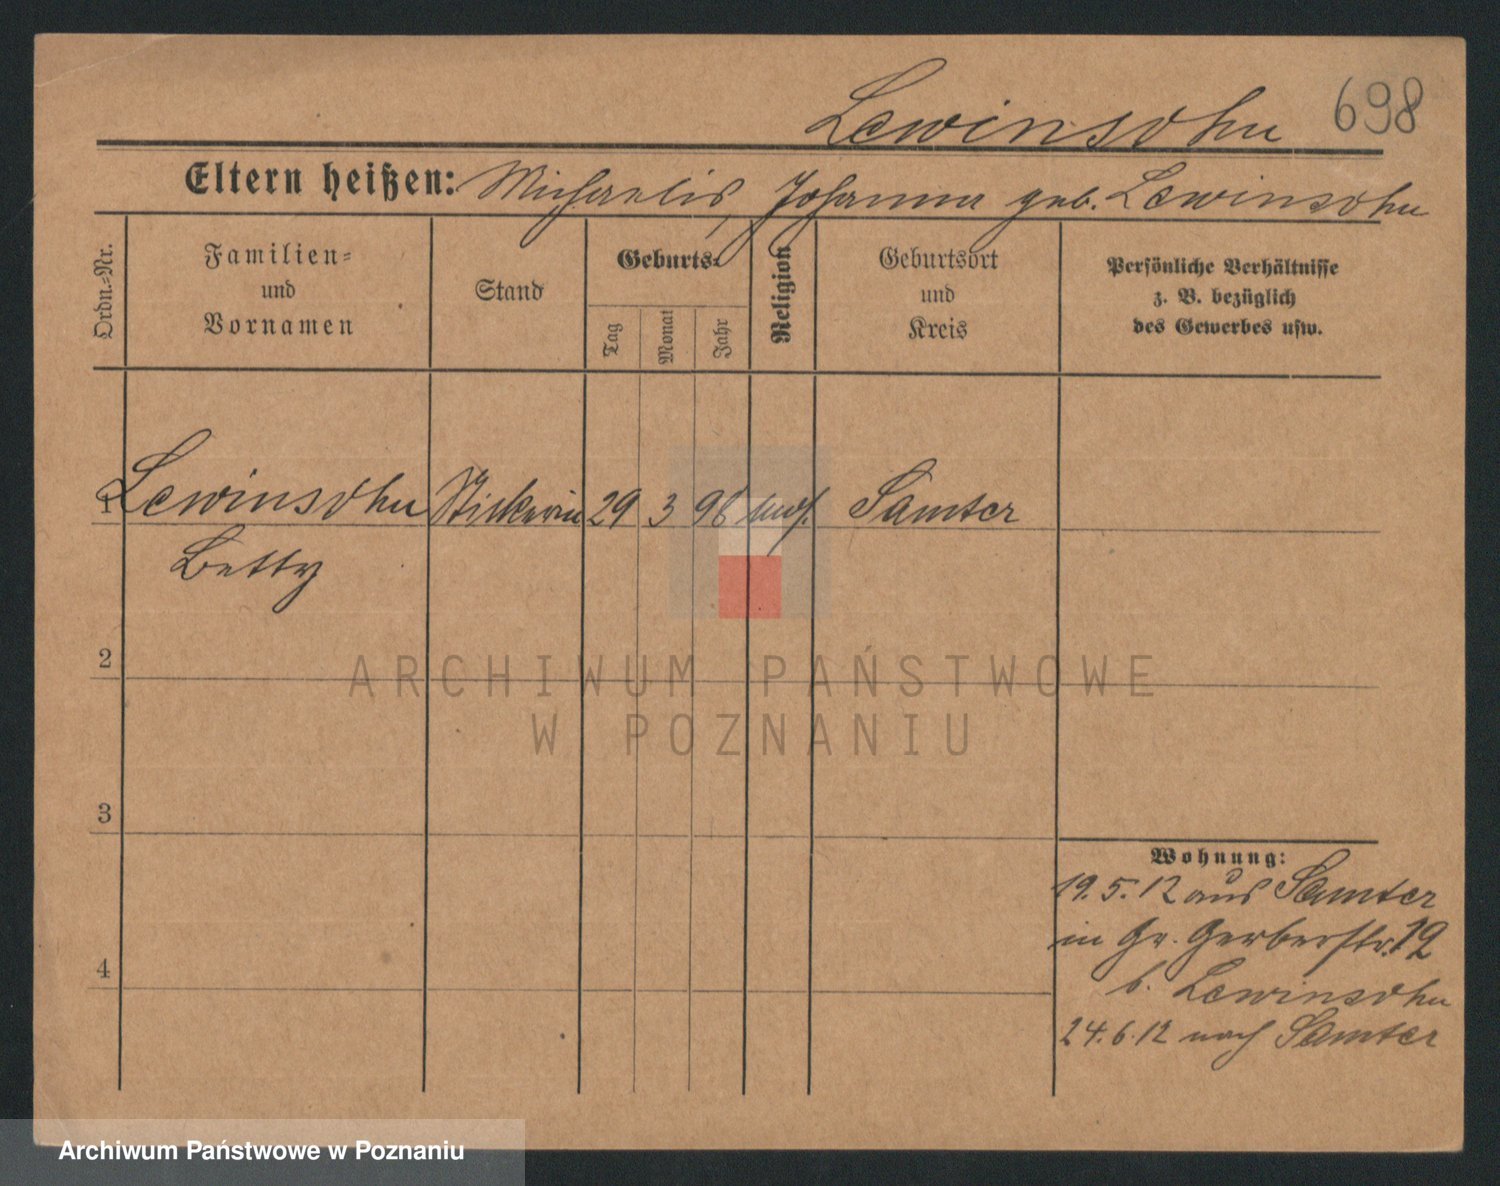 Lewinsohn 698
Eltern heißen: Michaelis, Johanna geb. Lewinsohn
Ordn.-Nr.
Familien-
und
Vornamen
Stand
Geburts-
Tag
Monat
Jahr
Religion
Geburtsort
und
Kreis
Persönliche Verhältnisse
z. B. bezüglich
des Gewerbes usw.
1 Lewinsohn Stickerin 29 3 96 mos. Samter
Betty
2
3
4
Wohnung:
19.5.12 aus Samter
in Gr. Gerberstr. 12
b. Lewinsohn
24.6.12 nach Samter
ARCHIWUM PAŃSTWOWE
W POZNANIU
Archiwum Państwowe w Poznaniu